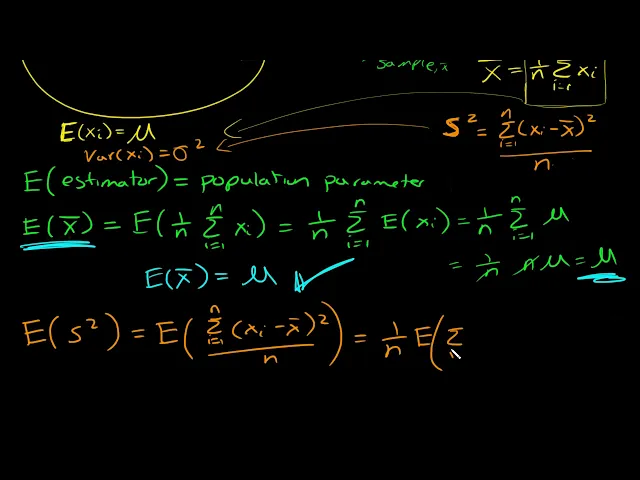 Sample, x̄
x̄ = 1/n Σ_{i=1}^{n} xᵢ
E(xᵢ) = μ
Var(xᵢ) = σ²
S² = Σ_{i=1}^{n} (xᵢ - x̄)² / n
E(estimator) = population parameter
E(x̄) = E(1/n Σ_{i=1}^{n} xᵢ) = 1/n Σ_{i=1}^{n} E(xᵢ) = 1/n Σ_{i=1}^{n} μ
= 1/n nμ = μ
E(x̄) = μ ✓
E(S²) = E(Σ_{i=1}^{n} (xᵢ - x̄)² / n) = 1/n E(Σ